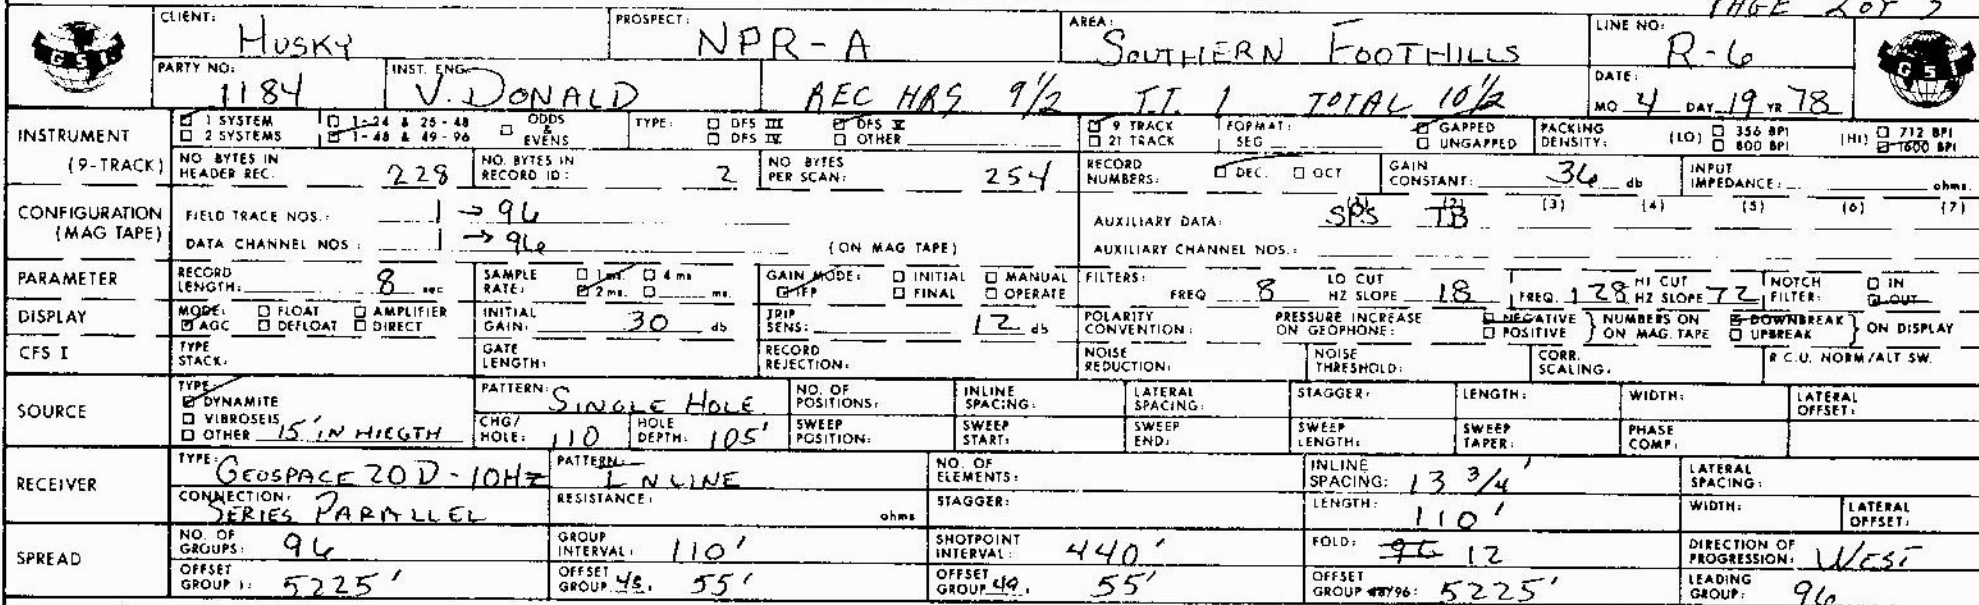 PAGE 2 OF 5
CLIENT: HUSKY PROSPECT: NPR-A AREA: SOUTHERN FOOTHILLS LINE NO: R-6
GSI GSI
PARTY NO: 1184 INST. ENG. V. DONALD REC HRS 9 1/2 T.T. 1 TOTAL 10 1/2 DATE: MO 4 DAY 19 YR 78
INSTRUMENT (9-TRACK)
☑ 1 SYSTEM ☐ 1-24 & 25-48 ☐ ODDS & EVENS TYPE: ☐ DFS III ☑ DFS V ☑ 9 TRACK FORMAT: ☑ GAPPED PACKING DENSITY: (LO) ☐ 356 BPI (HI) ☐ 712 BPI
☐ 2 SYSTEMS ☑ 1-48 & 49-96 ☐ DFS IV ☐ OTHER ☐ 21 TRACK SEG ☐ UNGAPPED ☐ 800 BPI ☑ 1600 BPI
NO BYTES IN HEADER REC. 228 NO. BYTES IN RECORD ID: 2 NO BYTES PER SCAN: 254 RECORD NUMBERS: ☑ DEC. ☐ OCT GAIN CONSTANT: 36 db INPUT IMPEDANCE: ohms.
CONFIGURATION (MAG TAPE)
FIELD TRACE NOS.: 1 → 96 AUXILIARY DATA: (1) SPS (2) TB (3) (4) (5) (6) (7)
DATA CHANNEL NOS: 1 → 96 (ON MAG TAPE) AUXILIARY CHANNEL NOS.:
PARAMETER RECORD LENGTH: 8 sec SAMPLE RATE: ☐ 1 ms. ☐ 4 ms ☑ 2 ms. ☐ ms. GAIN MODE: ☐ INITIAL ☐ MANUAL ☑ IFP ☐ FINAL ☐ OPERATE FILTERS: FREQ 8 LO CUT HZ SLOPE 18 FREQ. 128 HI CUT HZ SLOPE 72 NOTCH FILTER: ☐ IN ☑ OUT
DISPLAY MODE: ☐ FLOAT ☐ AMPLIFIER ☑ AGC ☐ DEFLOAT ☐ DIRECT INITIAL GAIN: 30 db TRIP SENS: 12 db POLARITY CONVENTION: PRESSURE INCREASE ON GEOPHONE: ☑ NEGATIVE ☐ POSITIVE } NUMBERS ON ON MAG. TAPE ☑ DOWNBREAK ☐ UPBREAK } ON DISPLAY
CFS I TYPE STACK: GATE LENGTH: RECORD REJECTION: NOISE REDUCTION: NOISE THRESHOLD: CORR. SCALING: R.C.U. NORM/ALT SW.
SOURCE
TYPE ☑ DYNAMITE PATTERN: SINGLE HOLE NO. OF POSITIONS: INLINE SPACING: LATERAL SPACING: STAGGER: LENGTH: WIDTH: LATERAL OFFSET:
☐ VIBROSEIS ☐ OTHER 15' IN HIEGTH CHG/HOLE: 110 HOLE DEPTH: 105' SWEEP POSITION: SWEEP START: SWEEP END: SWEEP LENGTH: SWEEP TAPER: PHASE COMP:
RECEIVER
TYPE: GEOSPACE 20 D-10HZ PATTERN: INLINE NO. OF ELEMENTS: INLINE SPACING: 13 3/4' LATERAL SPACING:
CONNECTION: SERIES PARALLEL RESISTANCE: ohms STAGGER: LENGTH: 110' WIDTH: LATERAL OFFSET:
SPREAD
NO. OF GROUPS: 96 GROUP INTERVAL: 110' SHOTPOINT INTERVAL: 440' FOLD: 96 12 DIRECTION OF PROGRESSION: WEST
OFFSET GROUP 1: 5225' OFFSET GROUP 48. 55' OFFSET GROUP 49. 55' OFFSET GROUP 48/96: 5225' LEADING GROUP: 96